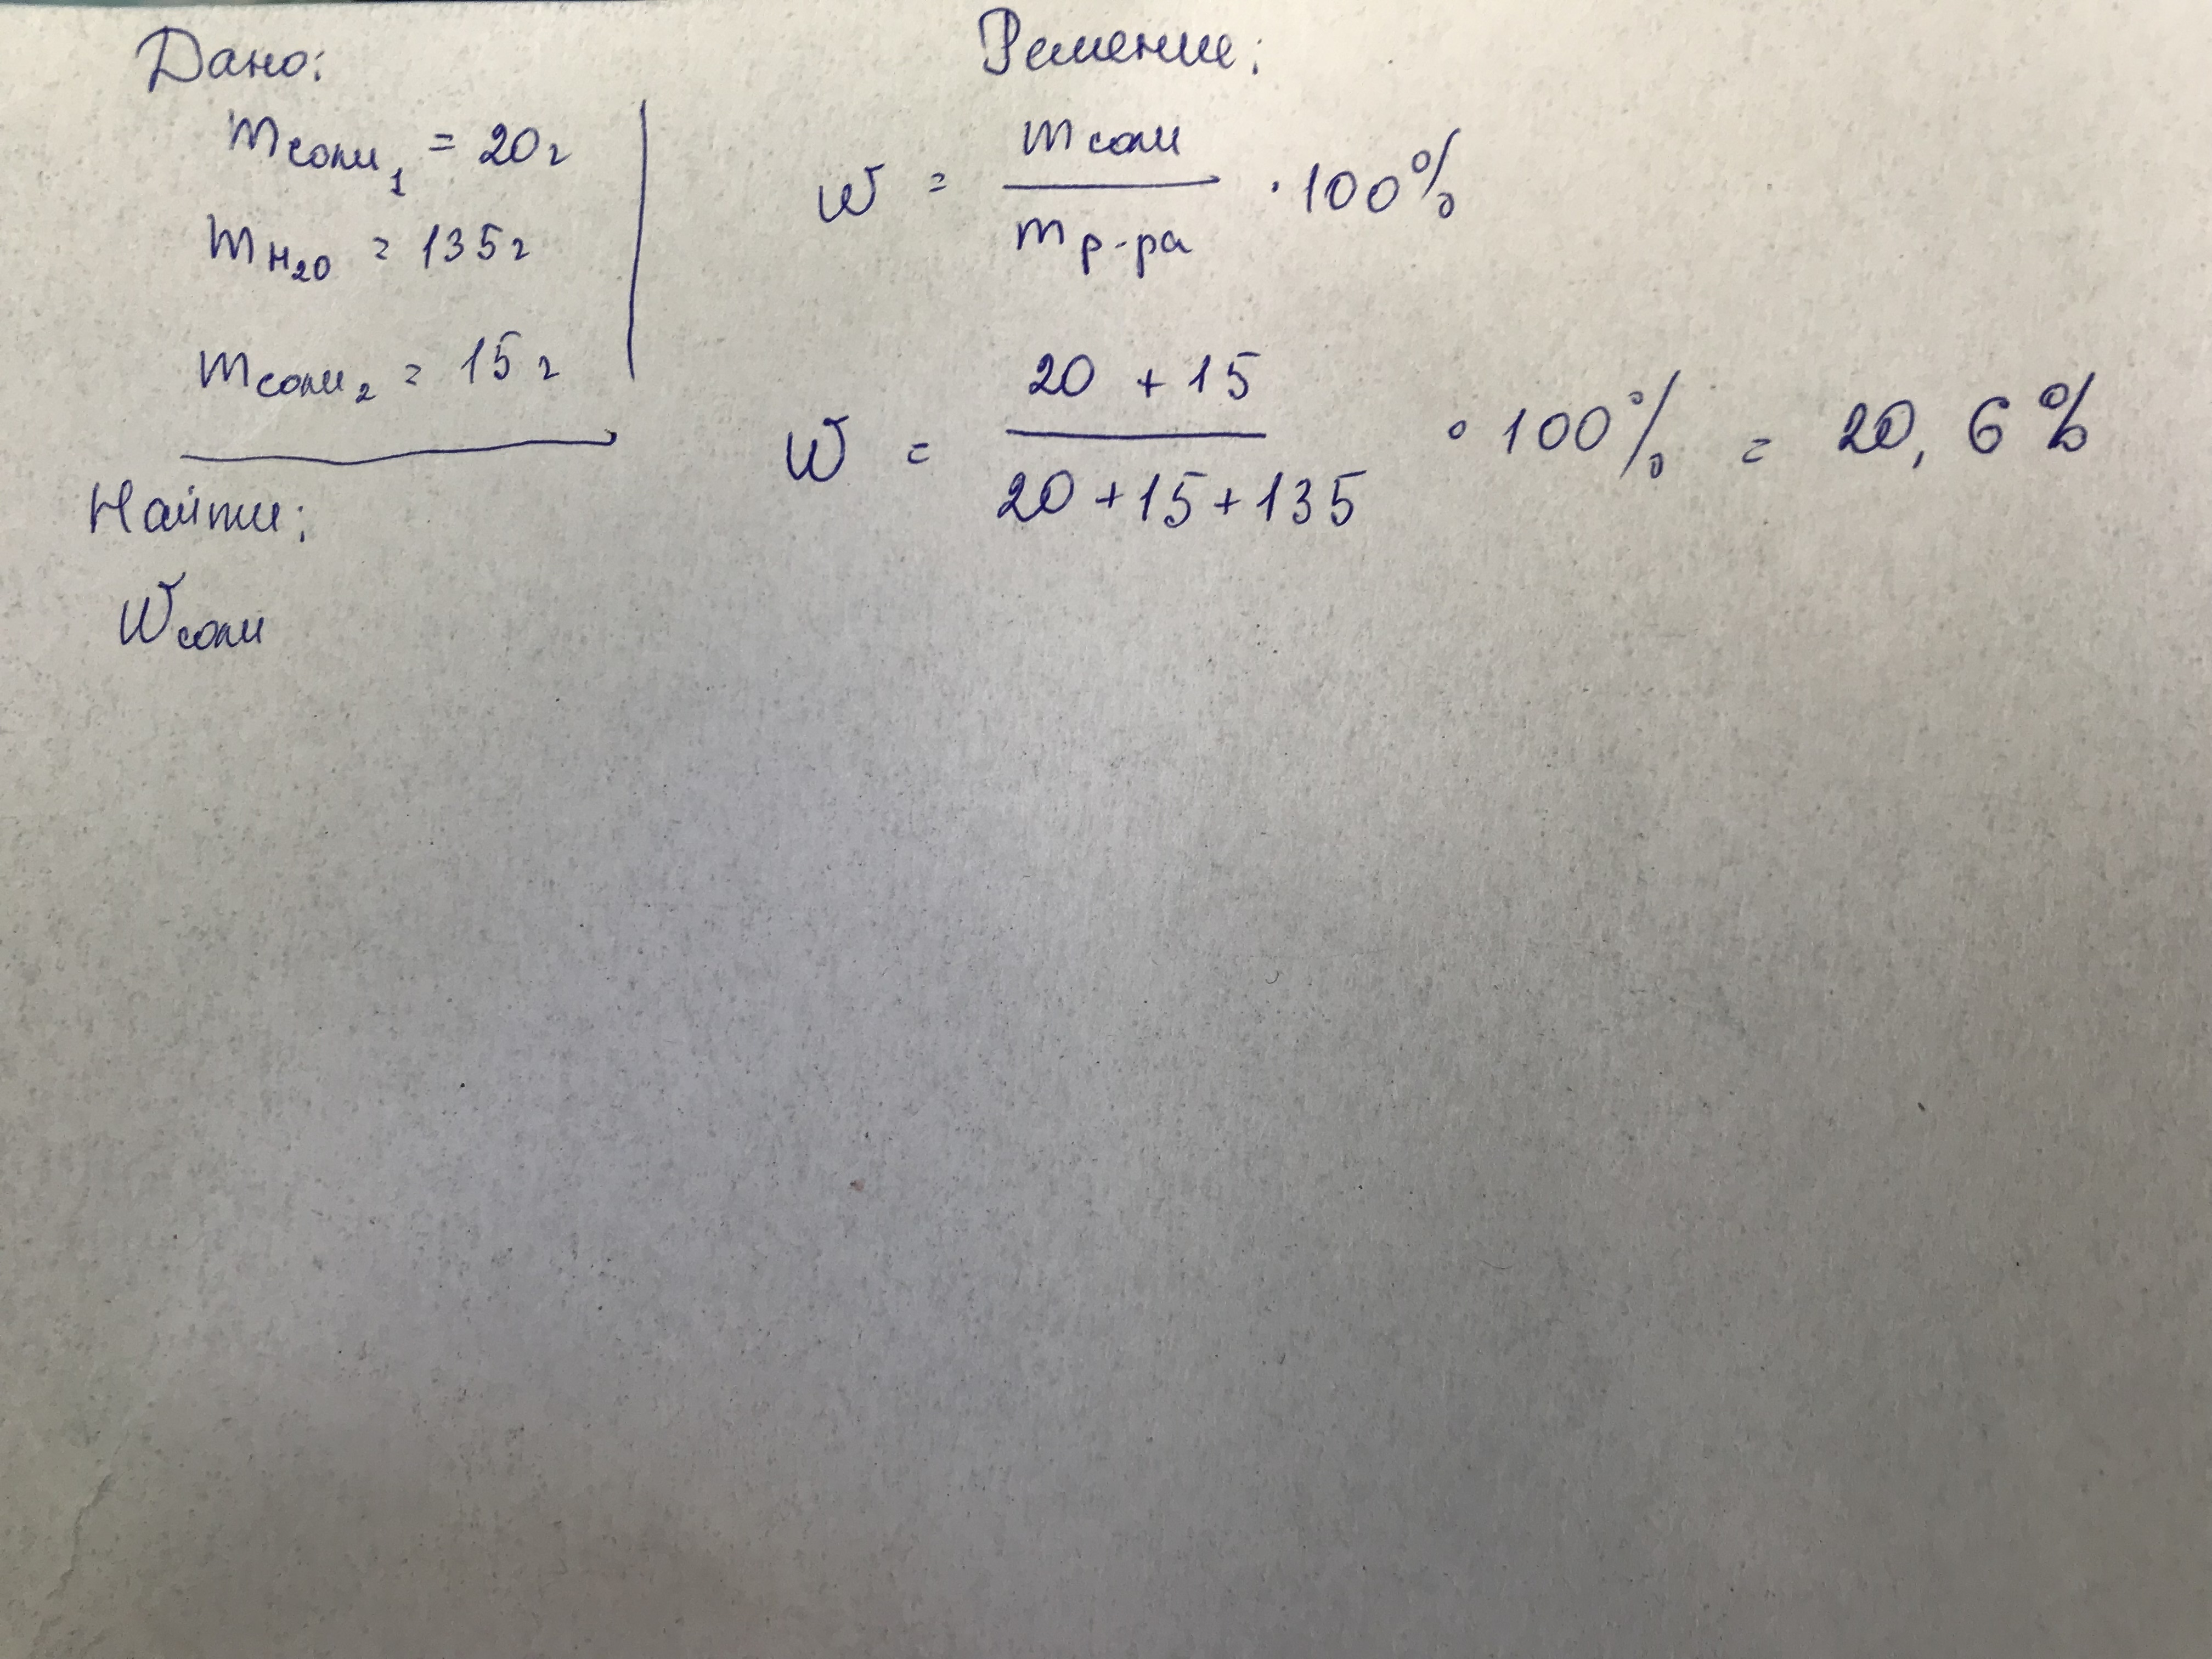 Дано:
m соли1 = 20г
m H2O = 135г
m соли2 = 15г
Найти:
W соли
Решение:
W = m соли / m р-ра · 100%
W = 20 + 15 / 20 + 15 + 135 · 100% = 20,6%